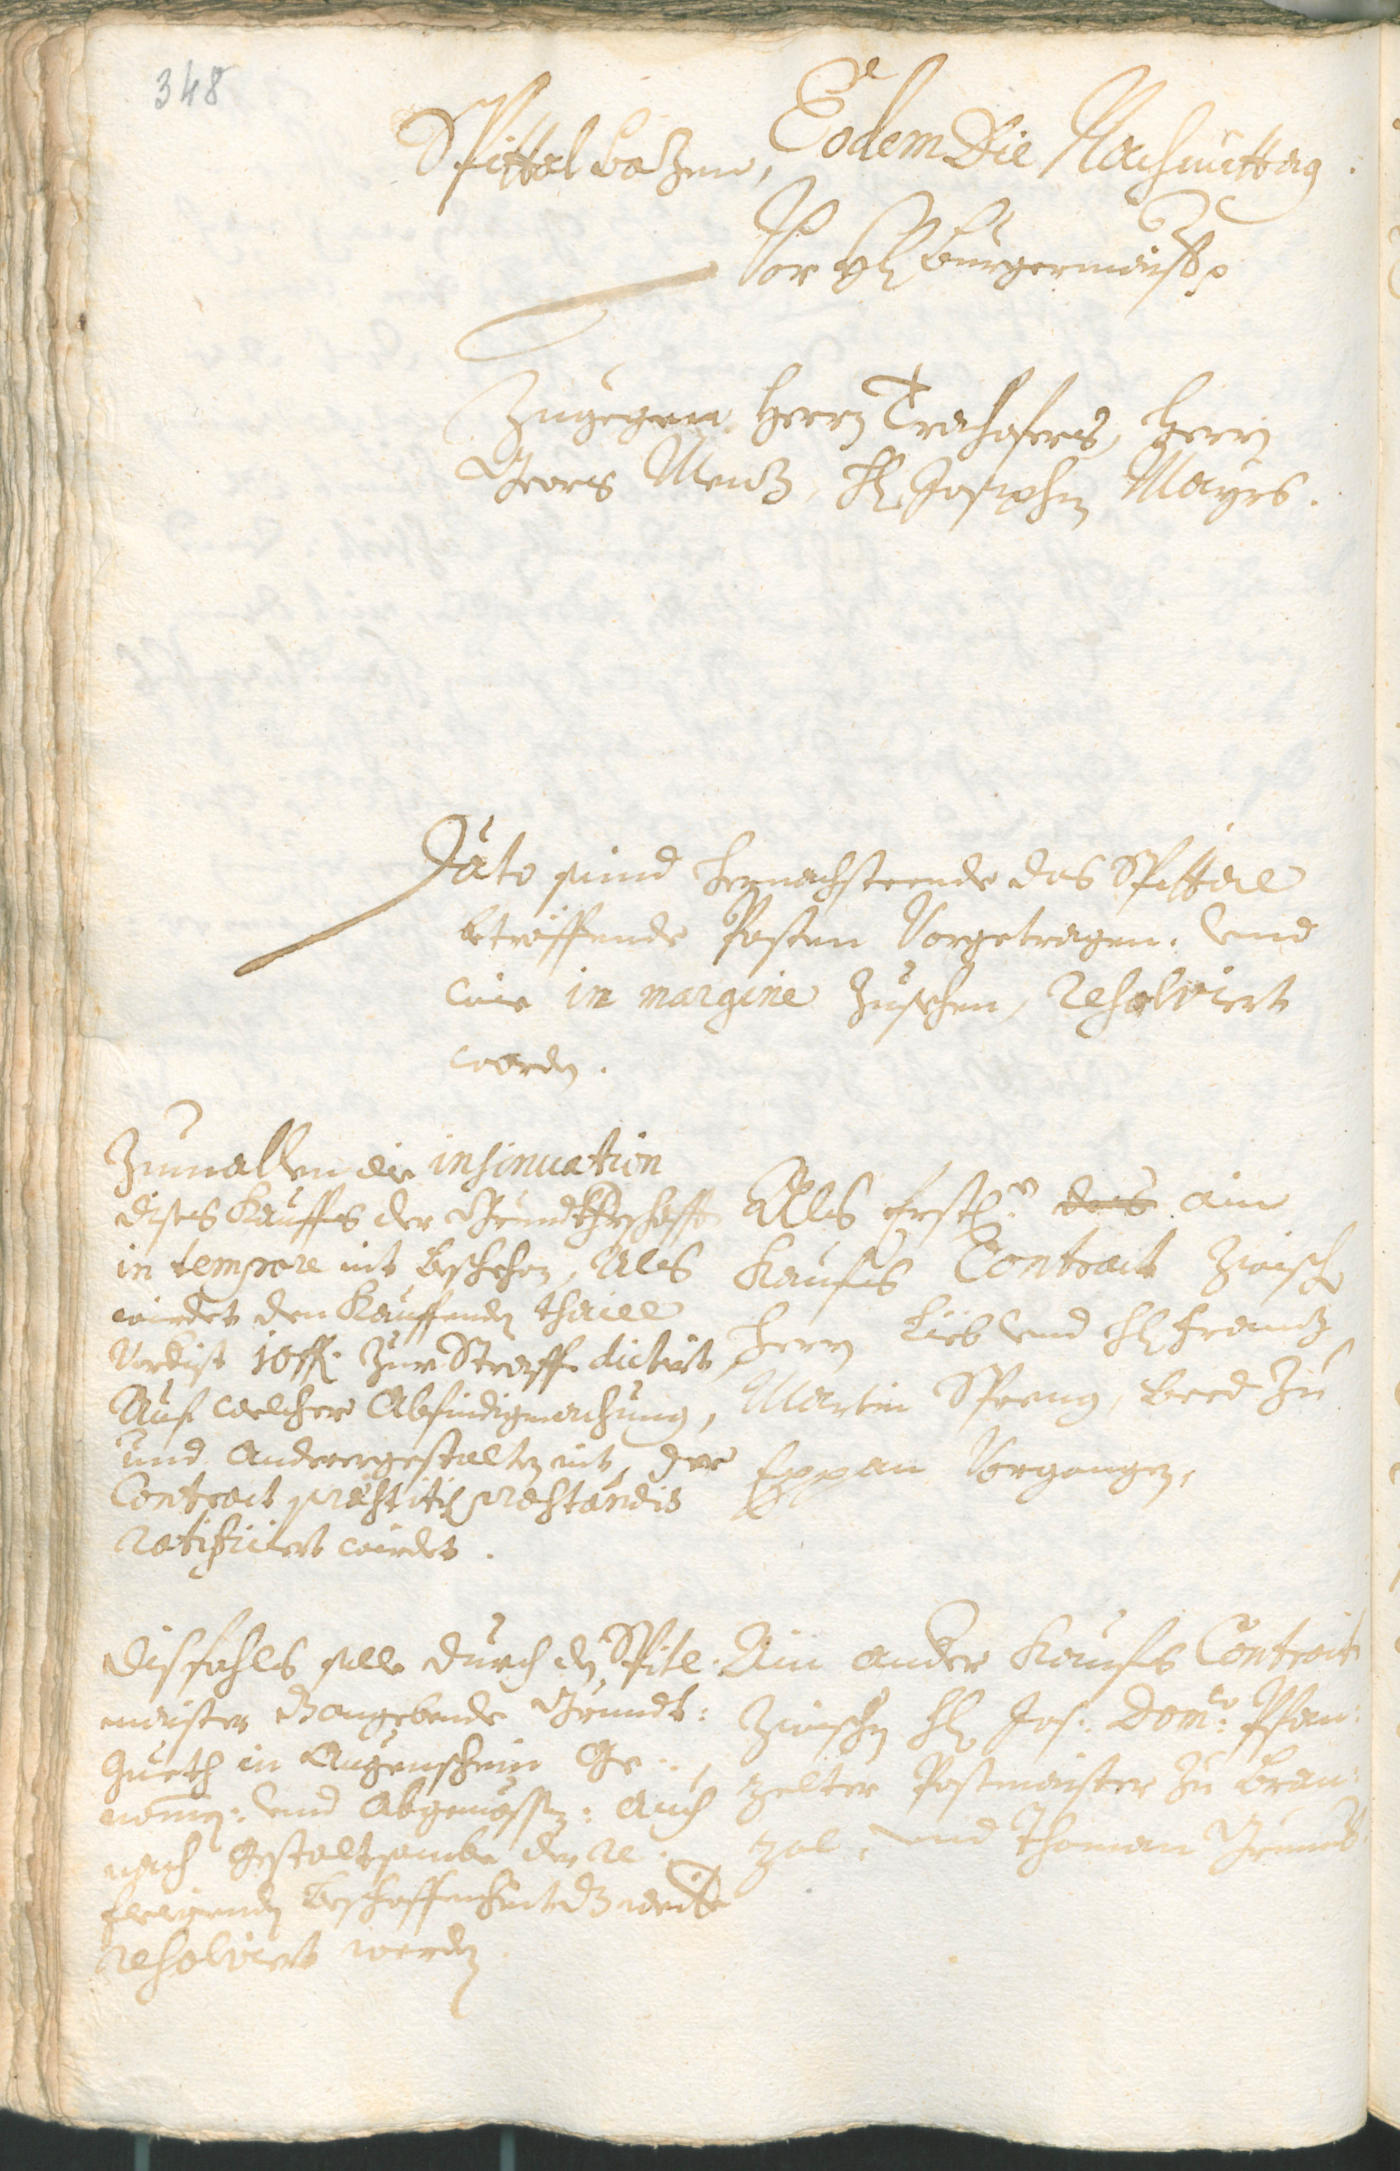 348
Spittal Bozen, Eodem Die Nachmittag.
Vor H Burgermaister
Zugegen Herrn Trahofers, Herrn
Georg Menz, H Josephen Mayrs.
Dato seind hernachsteende das Spittal
betröffende Posten Vorgetragen. vnd
wie in margine Zusehen, Resolviert
worden.
Zumallen die insinuation
dises Kauffs der Grundtherrschafft
in tempore nit beschehen, Als
wirdet den Kauffenden thaill
10 f. Zur Straff dictiert,
Auf welcher Abfindigmachung,
und anderergestalten nit, der
Contract praestitis praestandis
ratificiert wirdet.
Als Erstl: das ain
Kaufs Contract Zwisch
Herrn Lieb vnd H Frantz
Martin Spreng, beed Zu
Eppan Vorgangen,
Disfahls solle durch den Spitl-
maister angebende Grundt:
Gueth in Augenschein Ge-
nomen: vnd Abgemössen: auch
nach gestaltsambe der
Beschaffenheit
resolviert werden
Ain ander Kaufs Contract
Zwischen H Jos: Dom:co Pfan:
zelter Postmaister Zu Bran:
zol, vnd Thoman